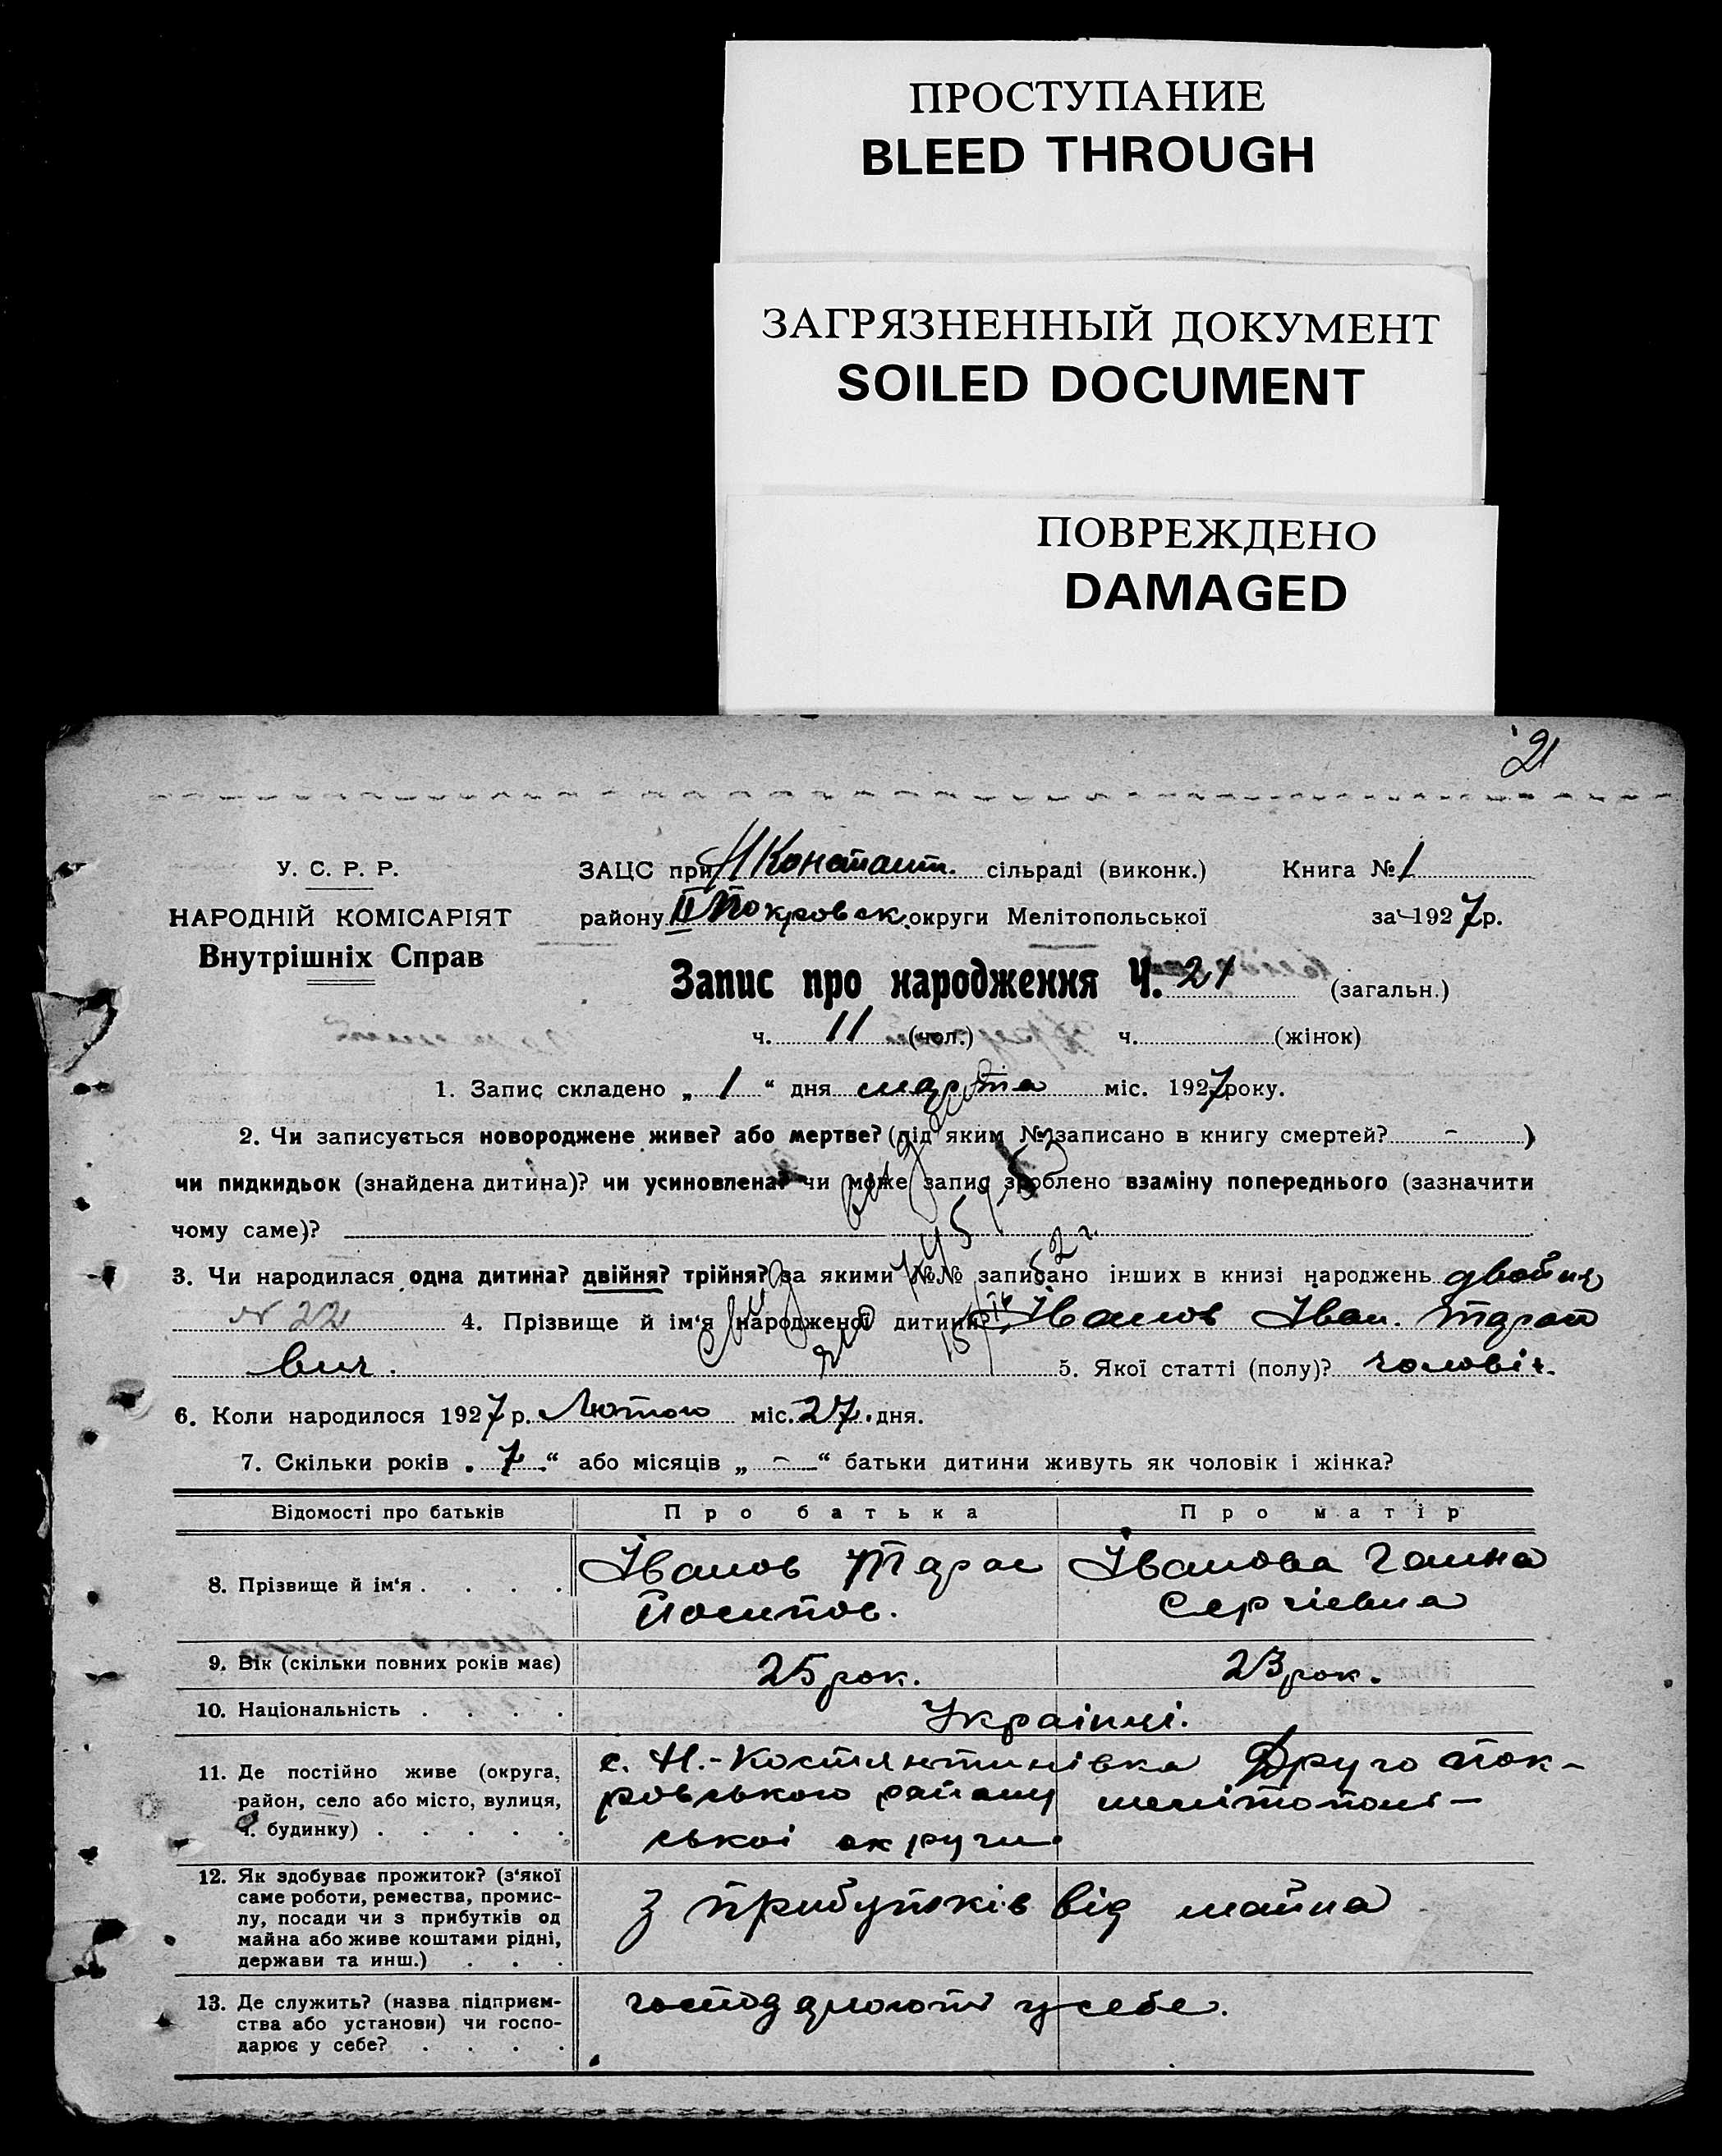 ПРОСТУПАНИЕ
BLEED THROUGH
ЗАГРЯЗНЕННЫЙ ДОКУМЕНТ
SOILED DOCUMENT
ПОВРЕЖДЕНО
DAMAGED
21
У. С. Р. Р.
НАРОДНІЙ КОМІСАРІЯТ
Внутрішніх Справ
ЗАЦС при Н Констант. сільраді (виконк.) Книга № 1
району II Покровск. округи Мелітопольської за 1927 р.
Запис про народження Ч. 21 (загальн.)
ч. 11 (чол.) ч. (жінок)
1. Запис складено „ 1 “ дня марта міс. 1927 року.
2. Чи записується новороджене живе? або мертве? (під яким № записано в книгу смертей? - )
чи пидкидьок (знайдена дитина)? чи усиновлена? чи може запис зроблено взаміну попереднього (зазначити
чому саме)?
3. Чи народилася одна дитина? двійня? трійня? за якими №№ записано інших в книзі народжень двойня
№ 22 4. Прізвище й ім'я народженої дитини? Іванов Іван. Тарасо
вич. 5. Якої статті (полу)? чоловіч.
6. Коли народилося 1927 р. Лютого міс. 27. дня.
7. Скільки років „ 7 “ або місяців „ - “ батьки дитини живуть як чоловік і жінка?
Відомості про батьків Про батька Про матір
8. Прізвище й ім'я . . . . Іванов Тарас Іванова Ганна
Йосипов. Сергіевна
9. Вік (скільки повних років має) 25 рок. 23 рок.
10. Національність . . . . Українці.
11. Де постійно живе (округа, с. Н.-Костянтинівка Друго Пок-
район, село або місто, вулиця, ровського району мелітополь-
ч. будинку) . . . . . ської округи.
12. Як здобуває прожиток? (з'якої
саме роботи, ремества, промис-
лу, посади чи з прибутків од з прибутків від майна
майна або живе коштами рідні,
держави та инш.) . . .
13. Де служить? (назва підприєм- господарюють у себе.
ства або установи) чи госпо-
дарює у себе? . . . .